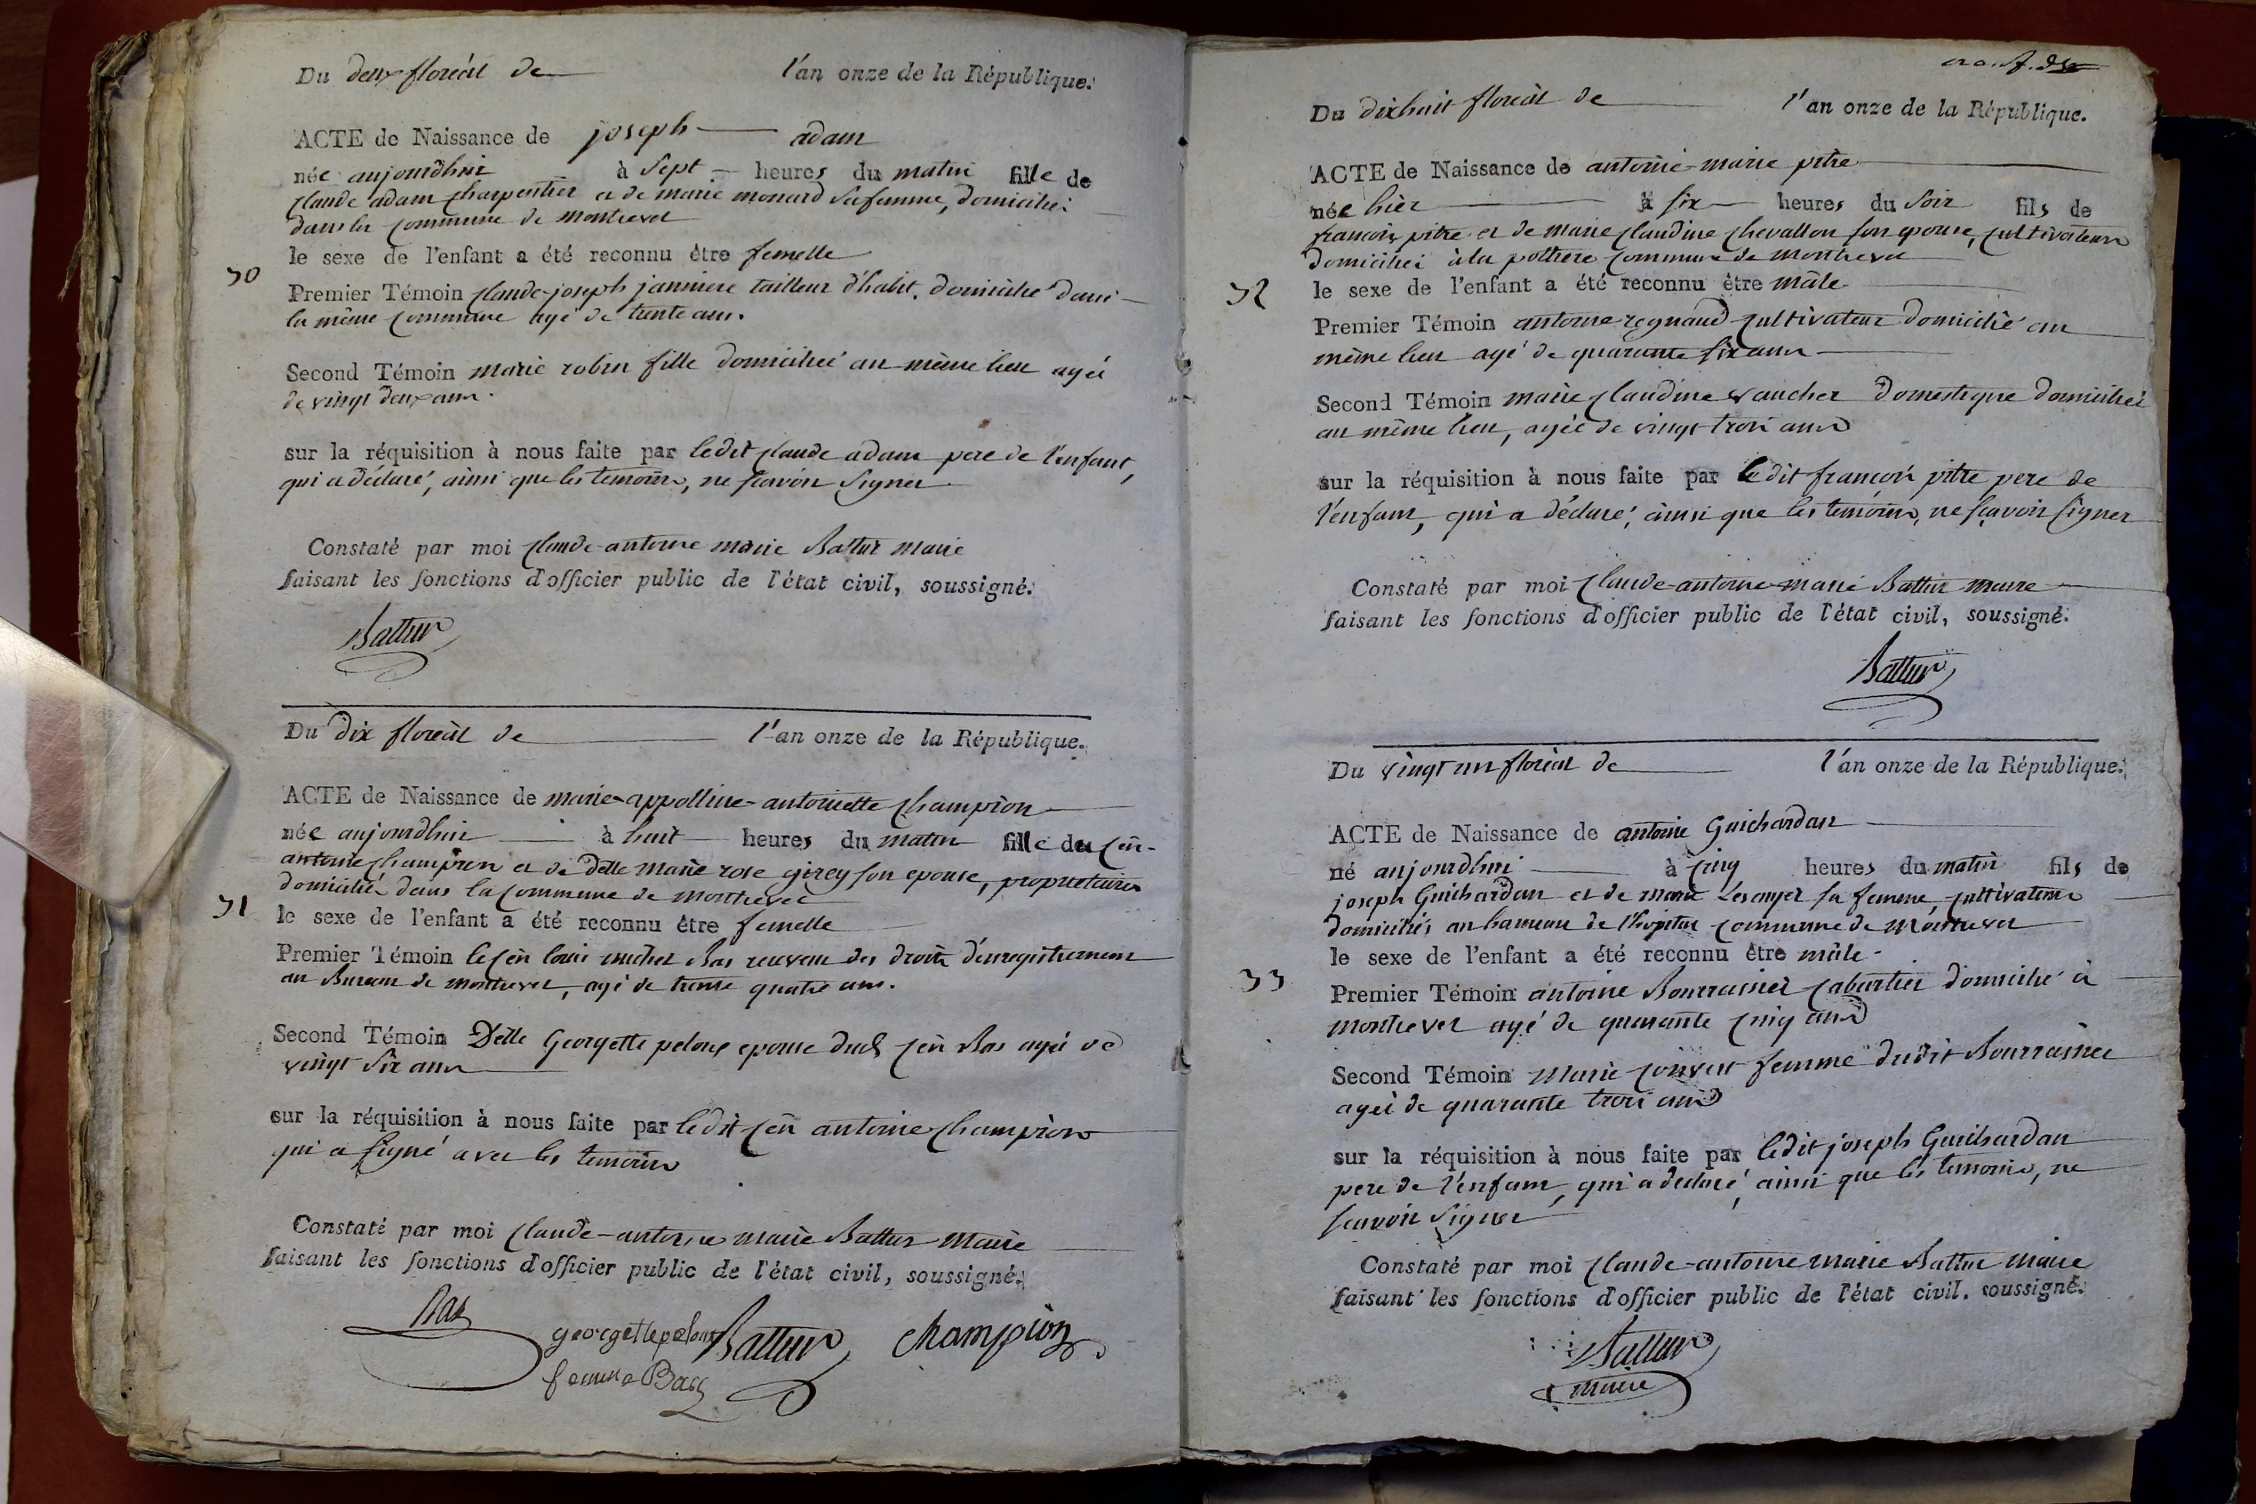 Du deux floréal de l'an onze de la République.
ACTE de Naissance de joseph adam
née aujourdhui à sept heures du matin fille de
claude adam charpentier et de marie monard sa femme, domiciliés
dans la commune de montrevel
le sexe de l'enfant a été reconnu être femelle
30
Premier Témoin claude-joseph janniere tailleur d'habit, domicilié dans
la même commune agé de trente ans.
Second Témoin marie robin fille domiciliée au même lieu agée
de vingt deux ans.
sur la réquisition à nous faite par ledit claude adam pere de l'enfant,
qui a déclaré, ainsi que les temoins, ne sçavoir signer
Constaté par moi claude-antoine marie Battur maire
faisant les fonctions d'officier public de l'état civil, soussigné.
Battur
Du dix floréal de l'an onze de la République.
ACTE de Naissance de marie-appolline-antoinette champion
née aujourdhui à huit heures du matin fille du cen
antoine champion et de delle marie rose girey son epouse, proprietaires
domiciliés dans la commune de montrevel
31
le sexe de l'enfant a été reconnu être femelle
Premier Témoin le cen louis michel Bas receveur des droits d'enregistrement
au Bureau de montrevel, agé de trente quatre ans.
Second Témoin Delle Georgette epouse dud cen Bas agée de
vingt six ans
sur la réquisition à nous faite par ledit cen antoine champion
qui a signé avec les temoins
Constaté par moi claude-antoine marie Battur maire
faisant les fonctions d'officier public de l'état civil, soussigné.
Bas
georgette
femme Bas
Battur
champion
Du dixhuit floréal de l'an onze de la République.
ACTE de Naissance de antoine-marie pitre
née hier à six heures du soir fils de
francois pitre et de marie claudine chevallon son epouse, cultivateurs
domiciliés à la commune de montrevel
32
le sexe de l'enfant a été reconnu être mâle
Premier Témoin antoine regnaud cultivateur domicilié au
même lieu agé de quarante six ans
Second Témoin marie claudine vaucher domestique domiciliée
au même lieu, agée de vingt trois ans
sur la réquisition à nous faite par le dit françois pitre pere de
l'enfant, qui a déclaré, ainsi que les temoins, ne sçavoir signer
Constaté par moi claude-antoine-marie Battur maire
faisant les fonctions d'officier public de l'état civil, soussigné.
Battur
Du vingt un floréal de l'an onze de la République.
ACTE de Naissance de antoine Guichardan
né aujourdhui à cinq heures du matin fils de
joseph Guichardan et de marie sa femme, cultivateurs
domiciliés au hameau de l'hopital commune de Montrevel
le sexe de l'enfant a été reconnu être mâle
33
Premier Témoin antoine Bourrassier cabartier domicilié à
montrevel agé de quarante cinq ans
Second Témoin Marie convert femme dudit Bourrassier
agée de quarante trois ans
sur la réquisition à nous faite par ledit joseph Guichardan
pere de l'enfant, qui a déclaré, ainsi que les temoins, ne
sçavoir signer
Constaté par moi claude-antoine marie Battur maire
faisant les fonctions d'officier public de l'état civil, soussigné.
Battur
maire